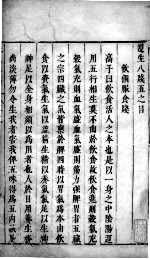 遵生八牋五之目
飲饌服食牋
高子曰飲食活人之本也是以一身之中陰陽運
用五行相生莫不由於飲食故飲食進則穀氣充
穀氣充則血氣盛血氣盛則筋力強脾胃者五臟
之宗四臟之氣皆稟於脾四時以胃氣爲本由飲
食以資氣生氣以益精生精以養氣氣足以生神
神足以全身相須以爲用者也人於日用養生務
尚淡薄勿令生我者害我俾五味得爲五內賊是